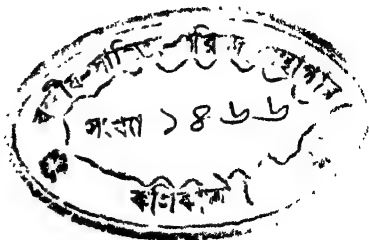 বঙ্গীয়-সাহিত্য-পরিষদ গ্রন্থাগার
সংখ্যা ১৪৬৬
কলিকাতা